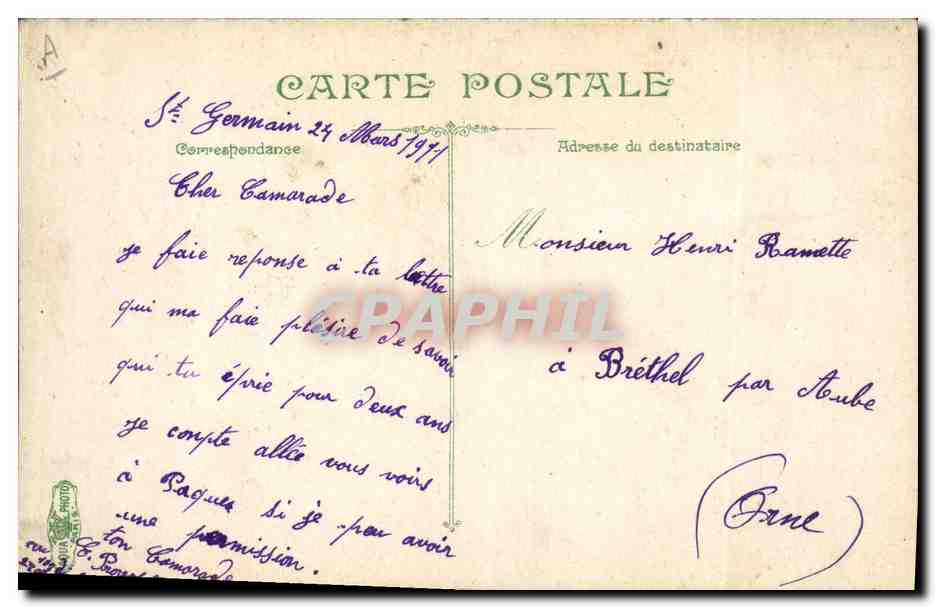 CARTE POSTALE
St Germain 24 Mars 1911
Correspondance
Adresse du destinataire
Cher Camarade
je faie reponse à ta lettre
qui ma faie plésire de savoir
qui tu éprie pour deux ans
Je conpte allée vous voirs
à Paques si je peu avoir
une permission.
ton Camarade
Monsieur Henri Ramette
à Bréthel par Aube
(Orne)
CPAPHIL
AQUA PHOTO
PARIS